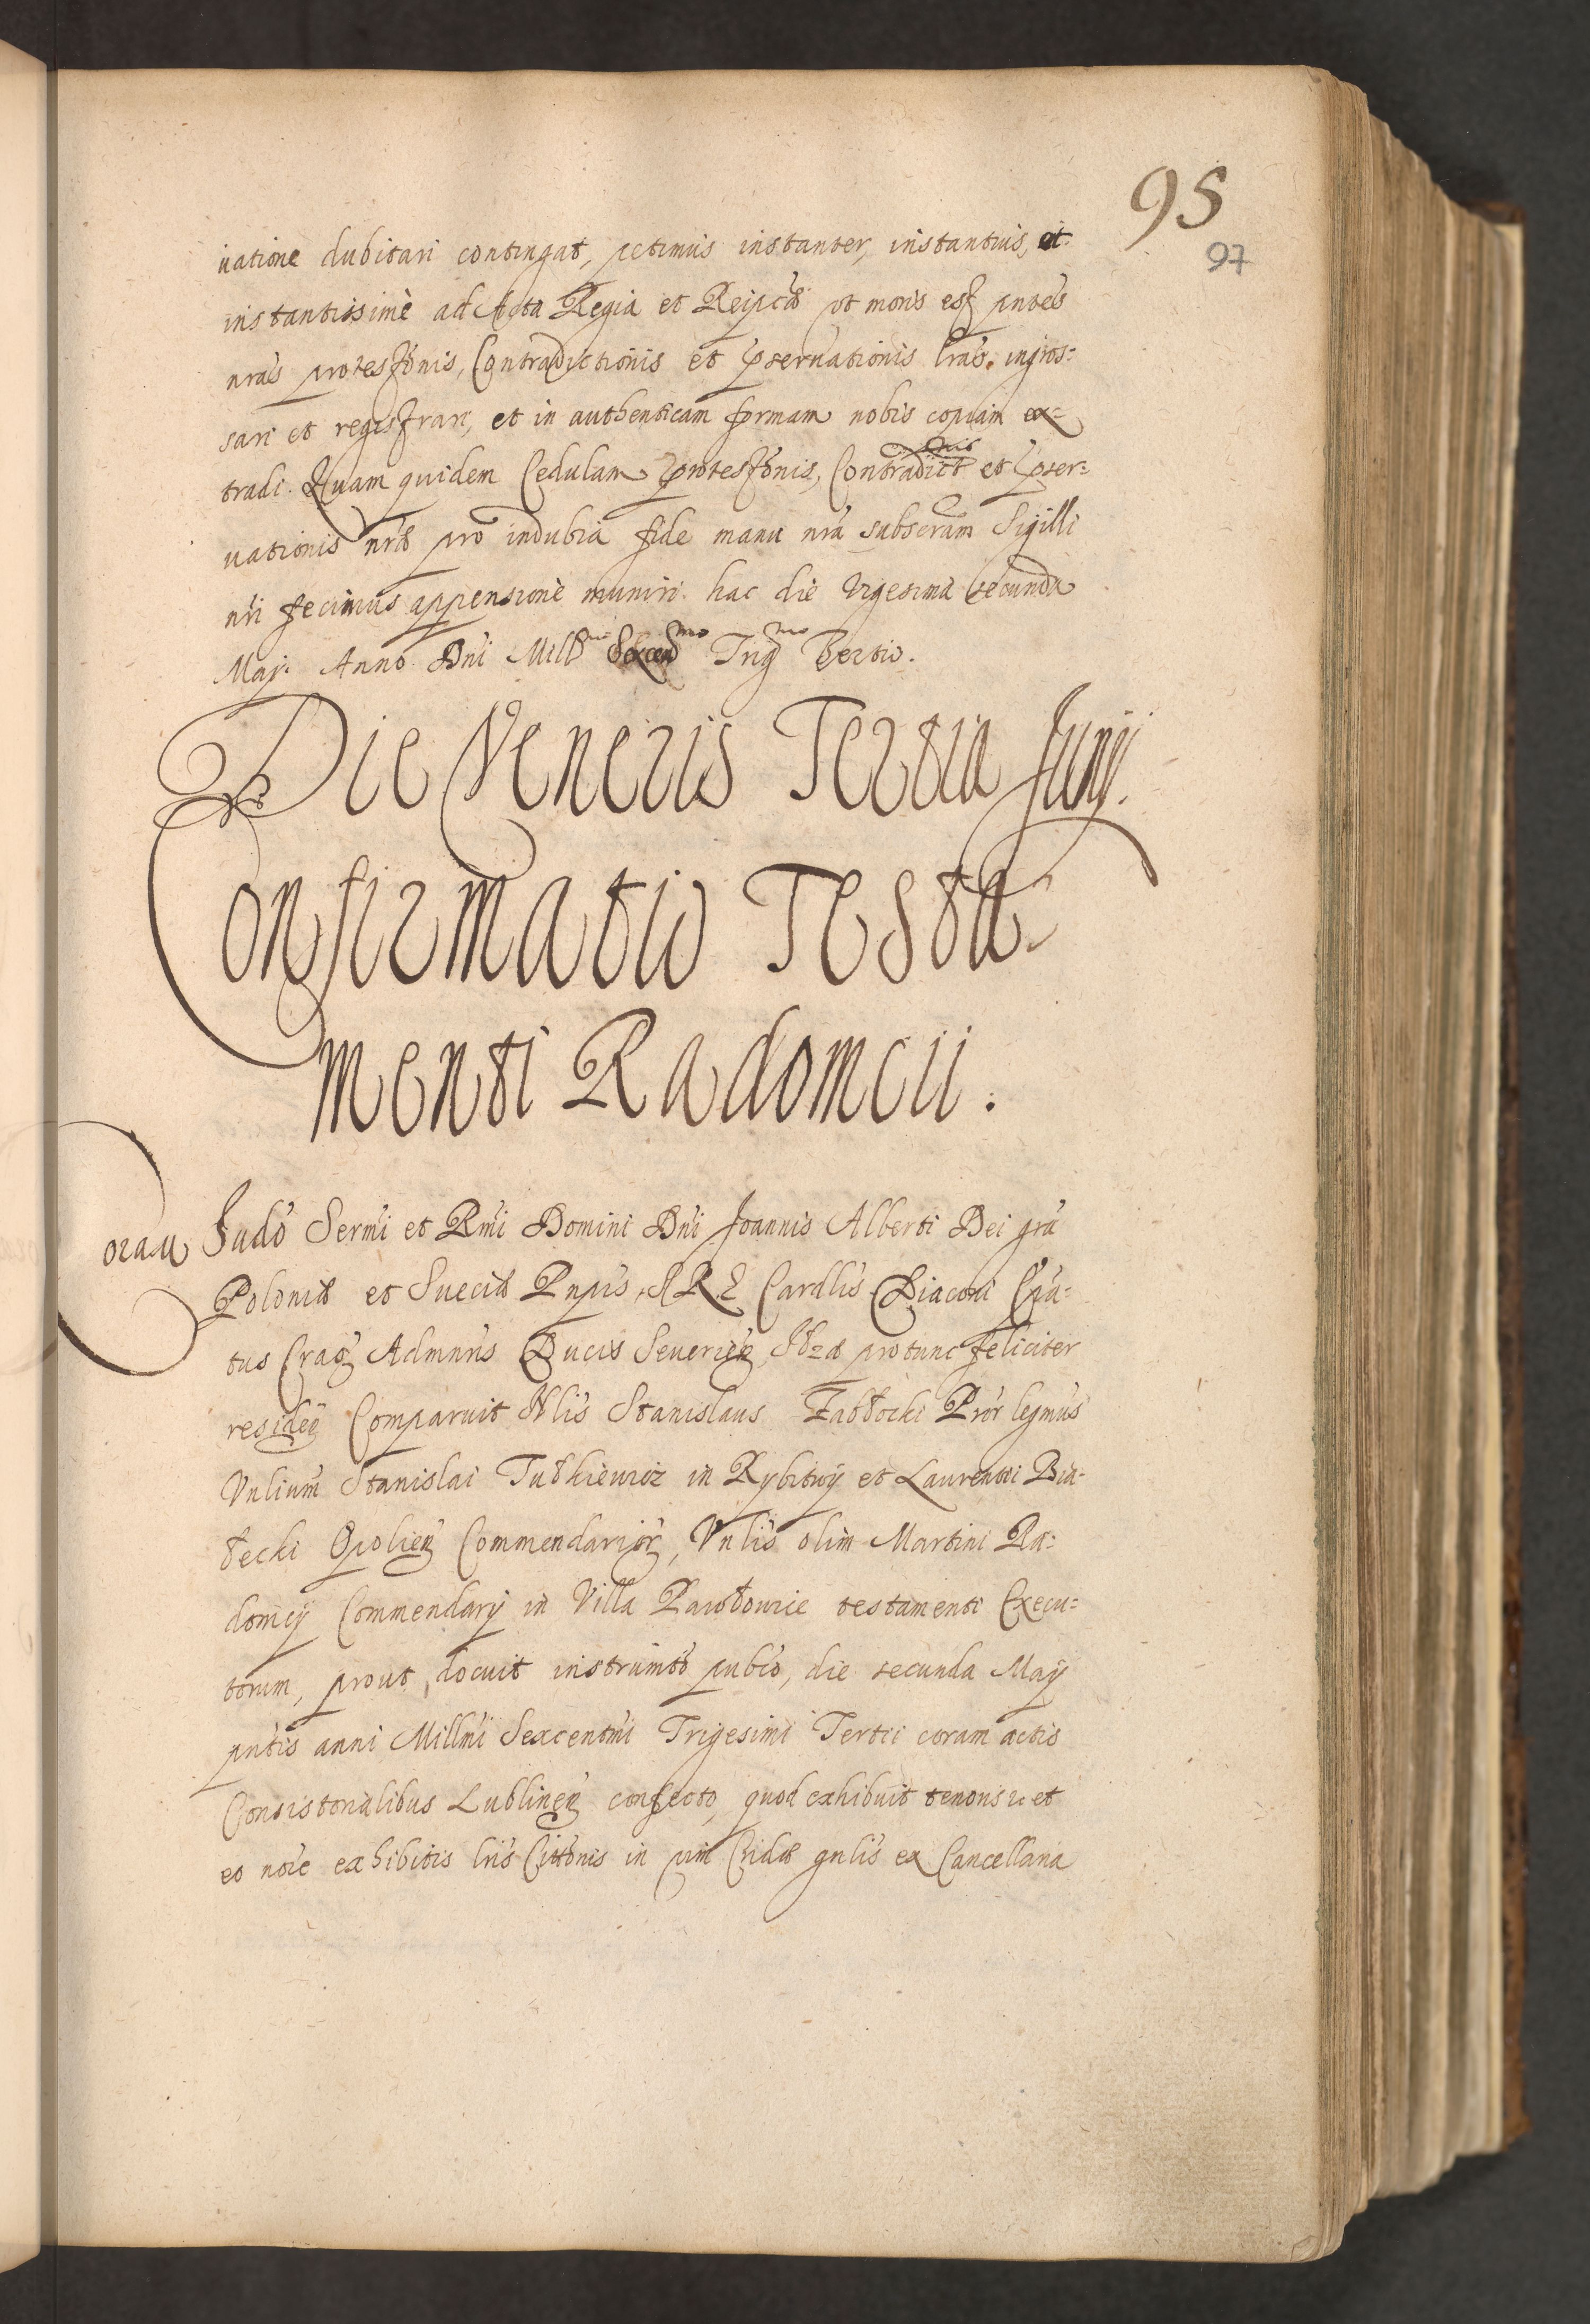 95
97
uatione dubitari contingat, petimus instanter, instantius, et
instantissimè ad Acta Regia et Reipcæ ut moris est pntes
nras protestonis, Contradictionis et pseruationis lras. ingros=
sari et registrari, et in authenticam formam nobis copiam ex=
tradi. Quam quidem Cedulam protestonis, Contradict et pser=
uationis nræ pro indubia fide manu nra subscram Sigilli
nri fecimus appensione muniri. hac die Vigesima secunda
Maj. Anno Dni Mill Sexcen Trig Tertio.
Die Veneris Tertia Junij.
Confirmatio Testa=
menti Radomcii.
Coram Judo Sermi et Rmi Domini Dni Joannis Alberti Dei gra
Poloniæ et Sueciæ Pnpis, S R E Cardlis Diaconi Epa=
tus Crac Admnris Ducis Seuerien, protunc feliciter
residen Comparuit Nlis Stanislaus Zabłocki Pror legmus
Vnlium Stanislai Tułkiewicz in Rybitwy et Laurentii Bia=
łecki Opolien Commendarior, Vnlis olim Martini Ra=
domcij Commendarij in Villa Pawłowice testamenti Execu=
torum, prout docuit instrumto pubco, die secunda Maij
pntis anni Millmi Sexcentmi Trigesimi Tertii coram actis
Consistorialibus Lublinen confecto, quod exhibuit tenoris et
eo noie exhibitis lris Cittonis in vim Cridæ gnlis ex Cancellaria